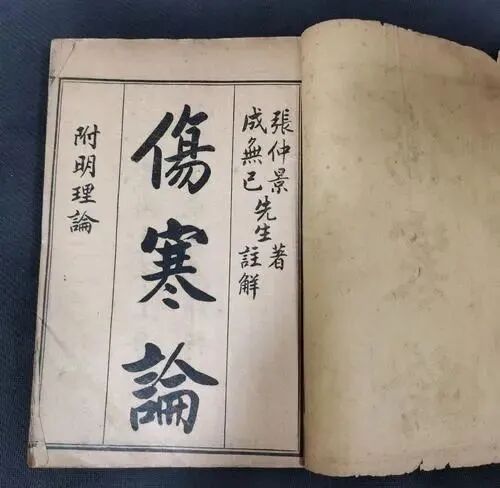 張仲景
成無己
先生
著
註解
傷寒論
附明理論